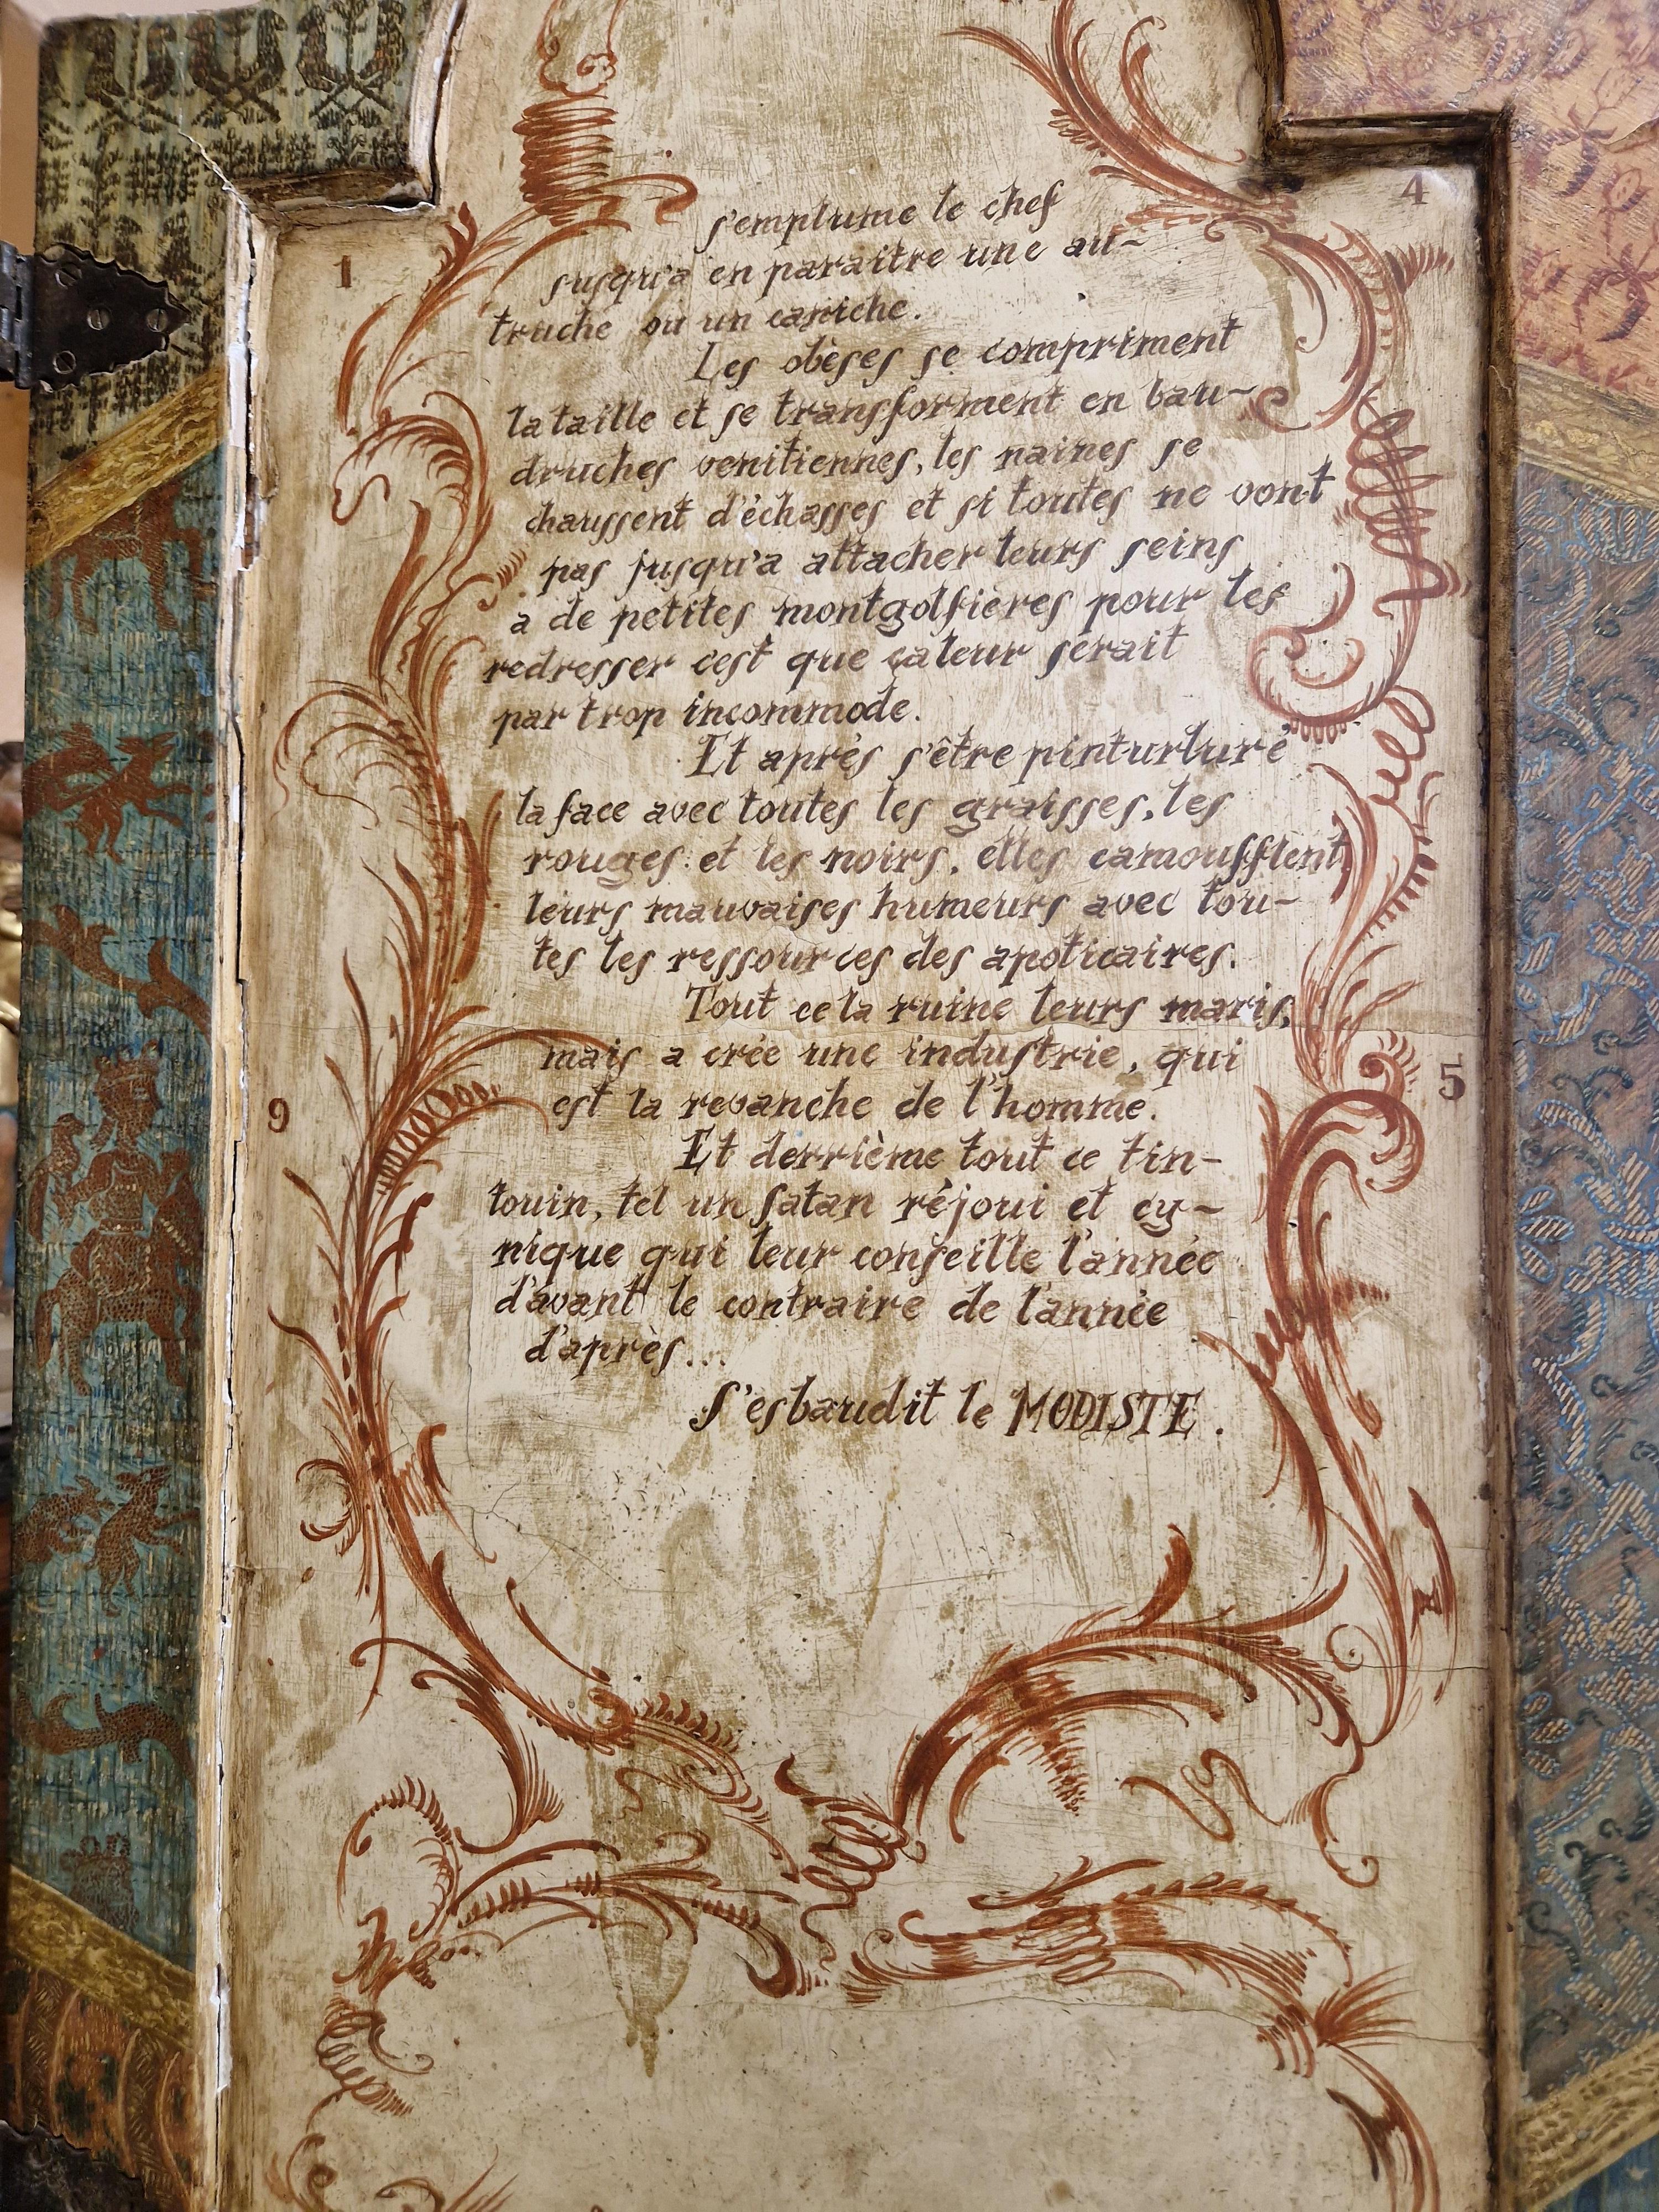 s'emplume le chef
4
1
jusqu'a en paraitre une au-
truche ou un caniche.
Les obèses se compriment
la taille et se transforment en bau-
druches venitiennes, les naines se
chaussent d'échasses et si toutes ne vont
pas jusqu'a attacher leurs seins
a de petites montgolfieres pour les
redresser c'est que çaleur serait
par trop incommode.
Et aprés s'être pinturluré
la face avec toutes les graisses, les
rouges et les noirs, elles camoufflent
leurs mauvaises humeurs avec tou-
tes les ressources des apoticaires.
Tout cela ruine leurs maris,
mais a crée une industrie, qui
5
9
est la revanche de l'homme.
Et derrième tout ce tin-
touin, tel un Satan réjoui et cy-
nique qui leur conseille l'année
d'avant le contraire de l'année
d'après...
S'esbaudit le MODISTE.